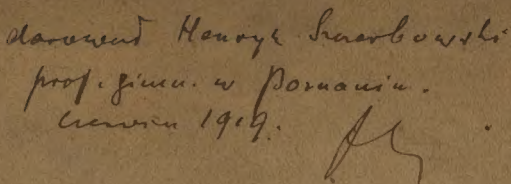 darował Henryk Szczerbowski
prof. gimn. w Poznaniu.
czerwiec 1919.